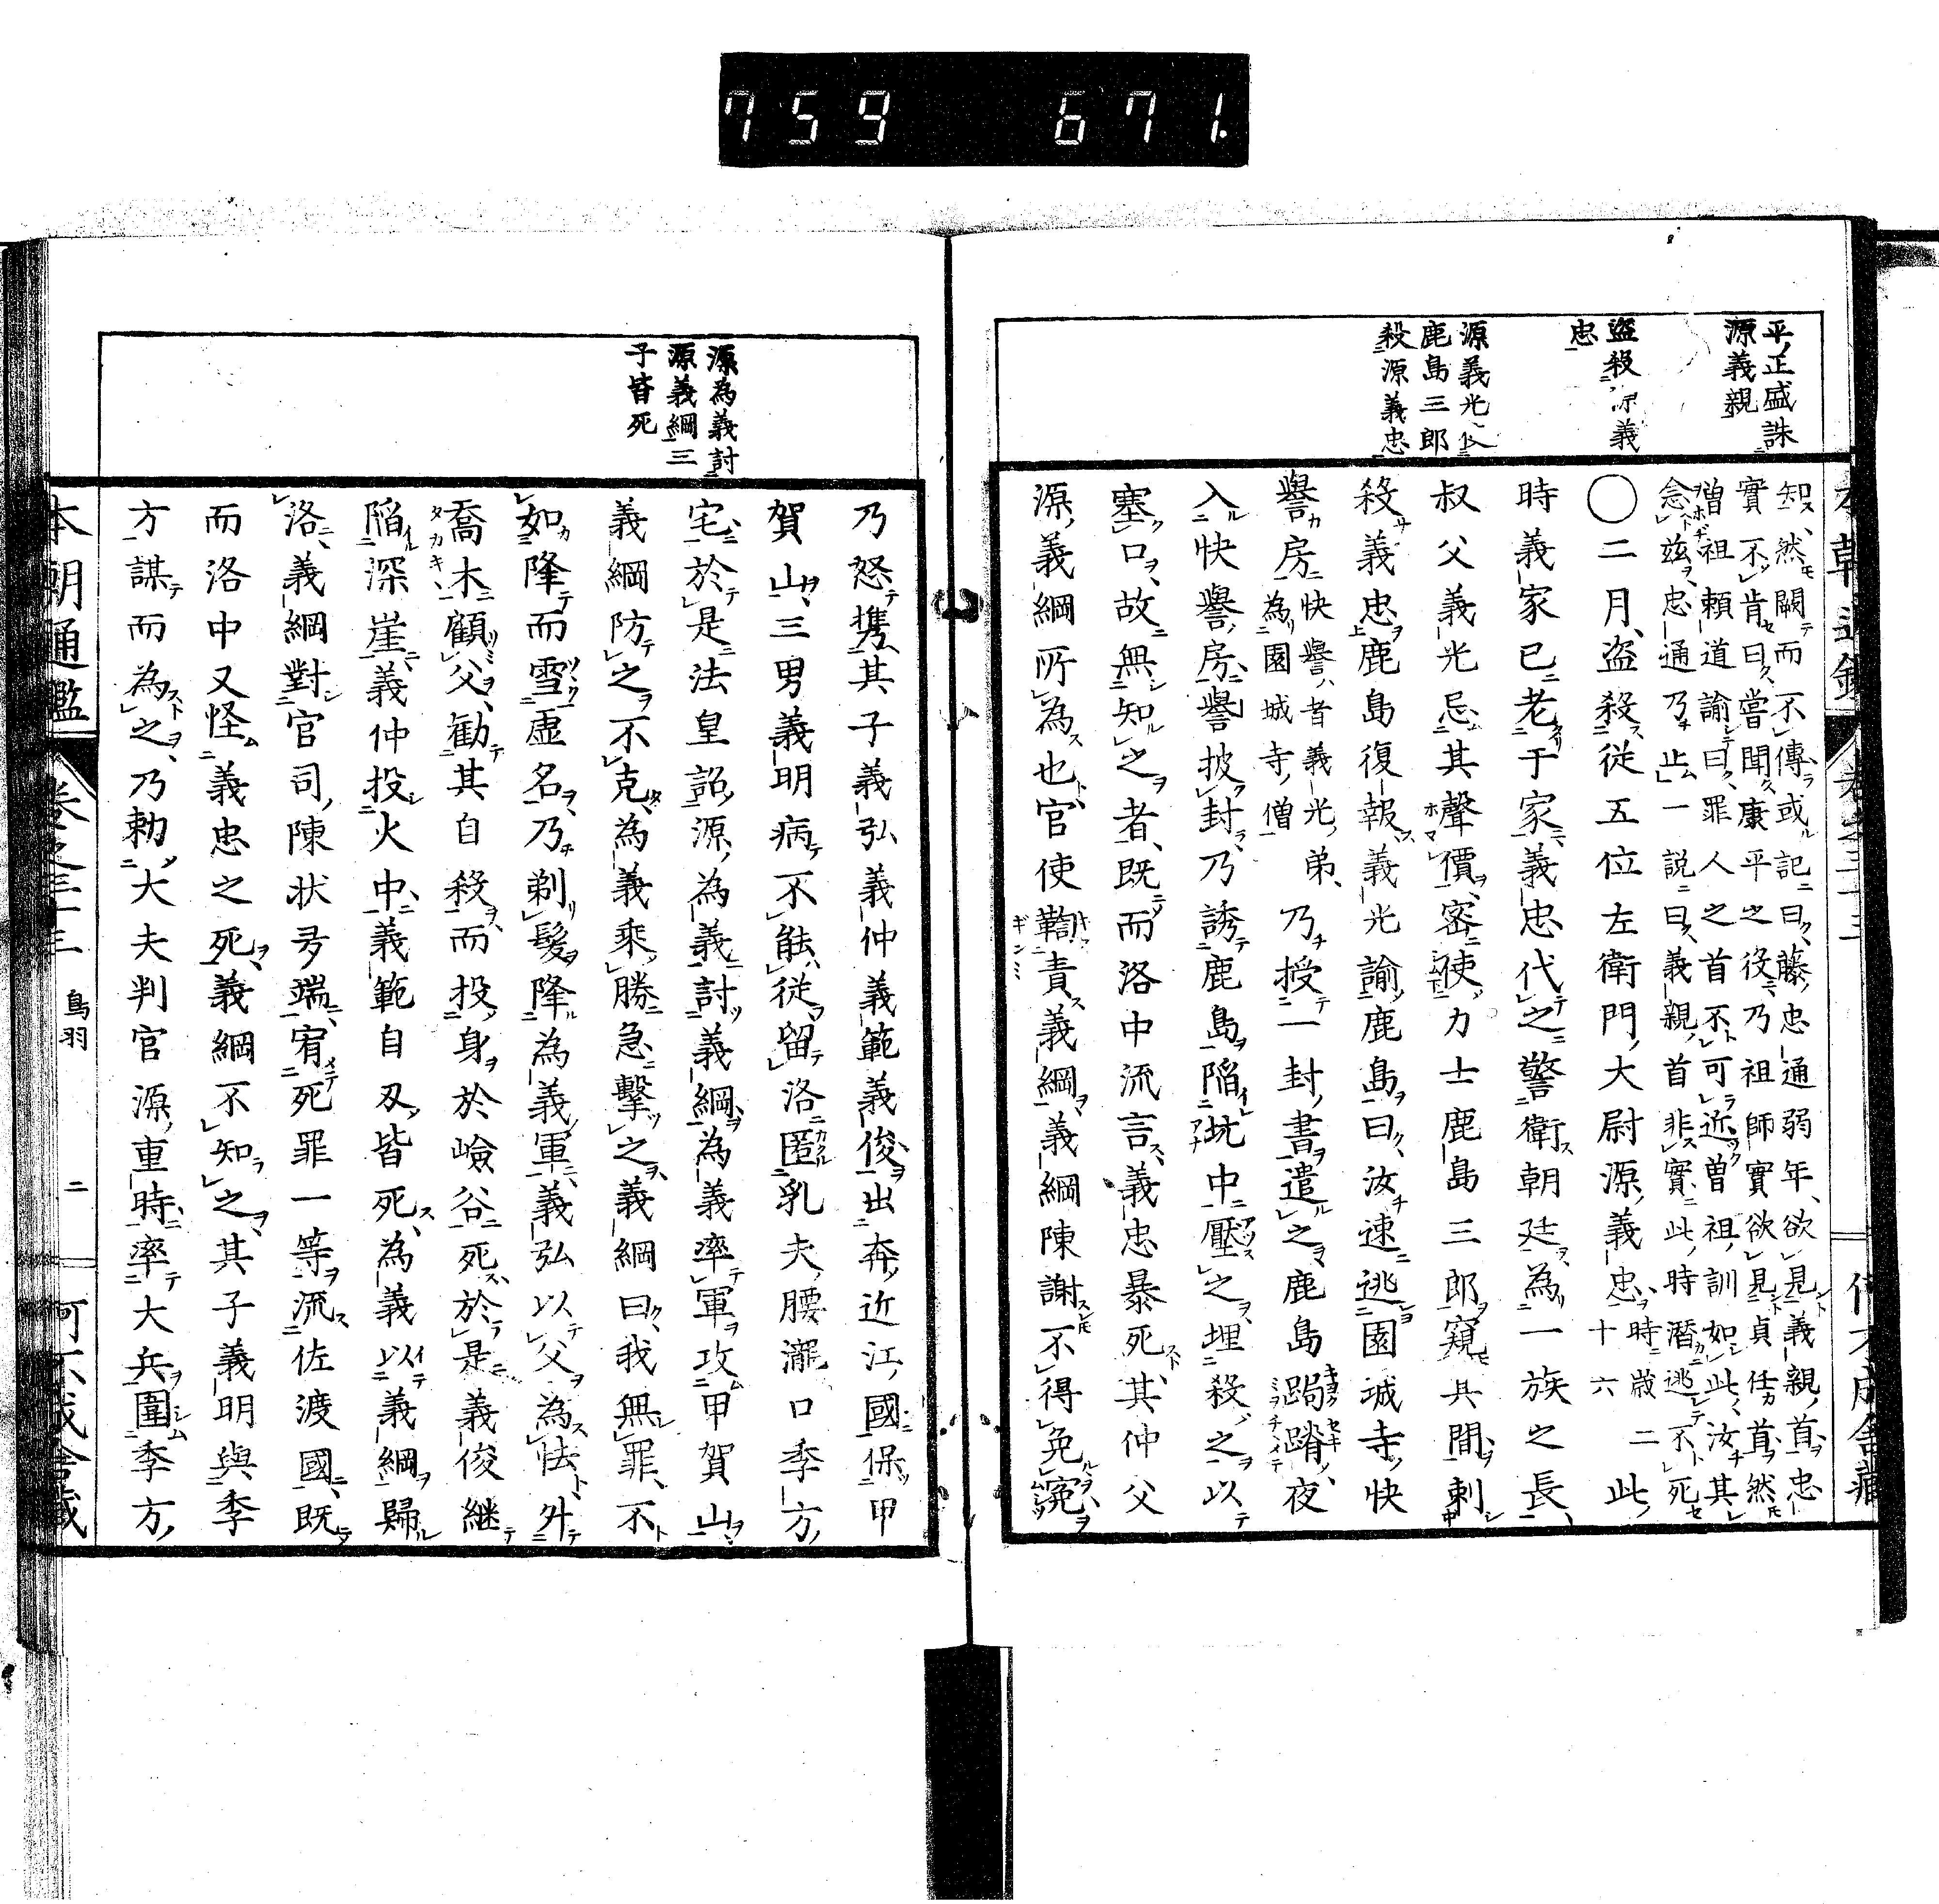 759 671.
平正盛誅
源義親
盜殺源義
忠
源義光使
鹿島三郎
殺源義忠
知、然闕而不傳、或記曰、藤忠通弱年、欲見義親首、忠
實不肯曰、嘗聞康平之役、乃祖師實欲見貞任首、然
曾祖頼道諭曰、罪人之首不可近、曾祖訓如此、汝其
念茲、忠通乃止、一説曰、義親首非實、此時潛逃不死
〇二月、盜殺從五位左衛門大尉源義忠、時歲二十六此
時義家已老于家、義忠代之警衛朝廷、為一族之長、
叔父義光忌其聲價、密使力士鹿島三郎窺其間刺
殺義忠、鹿島復報義光、諭鹿島曰、汝速逃園城寺、快
譽房、快譽者義光弟、為園城寺僧乃授一封書遣之、鹿島跼蹐、夜
入快譽房、譽披封、乃誘鹿島陷坑中、壓之埋殺之、以
塞口、故無知之者、既而洛中流言、義忠暴死、其仲父
源義綱所為也、官使鞫責義綱、義綱陳謝、不得免冤、
源為義討
源義綱三
子皆死
乃怒、携其子義弘義仲義範義俊出奔近江國、保甲
賀山、三男義明病、不能從、留洛、匿乳夫腰瀧口季方
宅、於是法皇詔源為義討義綱、為義率軍攻甲賀山、
義綱防之不克、為義乘勝急擊之、義綱曰、我無罪、不
如降而雪虛名、乃剃髮降為義軍、義弘以父為怯、升
喬木顧父、勸其自殺而投身於嶮谷死、於是義俊継
陷深崖、義仲投火中、義範自刃、皆死、為義以義綱歸
洛、義綱對官司、陳状多端、宥死罪一等、流佐渡國、既
而洛中又怪義忠之死、義綱不知之、其子義明與季
方謀而為之、乃勅大夫判官源重時、率大兵圍季方
本朝通鑑 卷之三十三 鳥羽 二